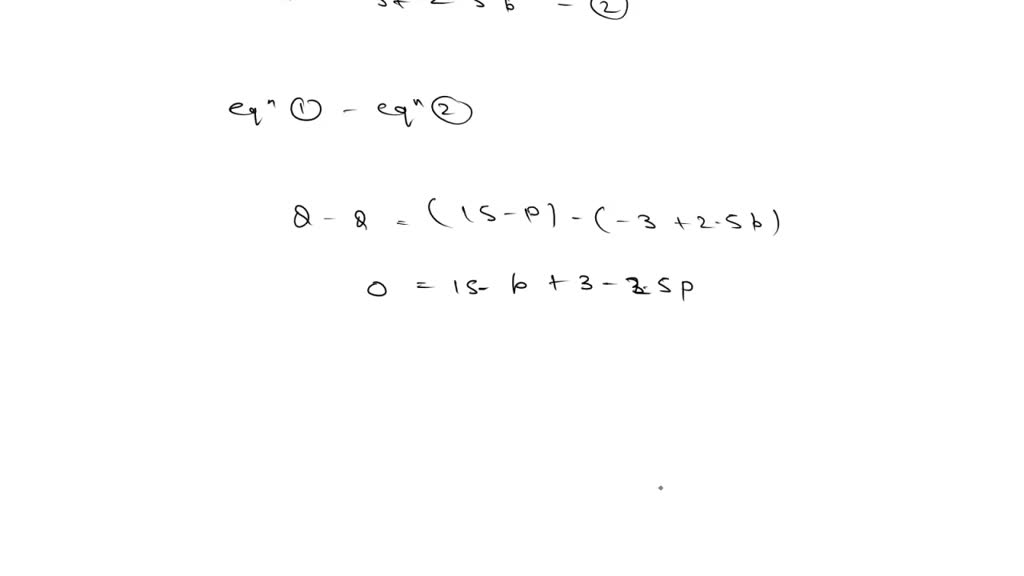 - ②
eqⁿ ① - eqⁿ ②
Q - Q = (15 - p) - (-3 + 2.5p)
0 = 15 - p + 3 - 2.5p